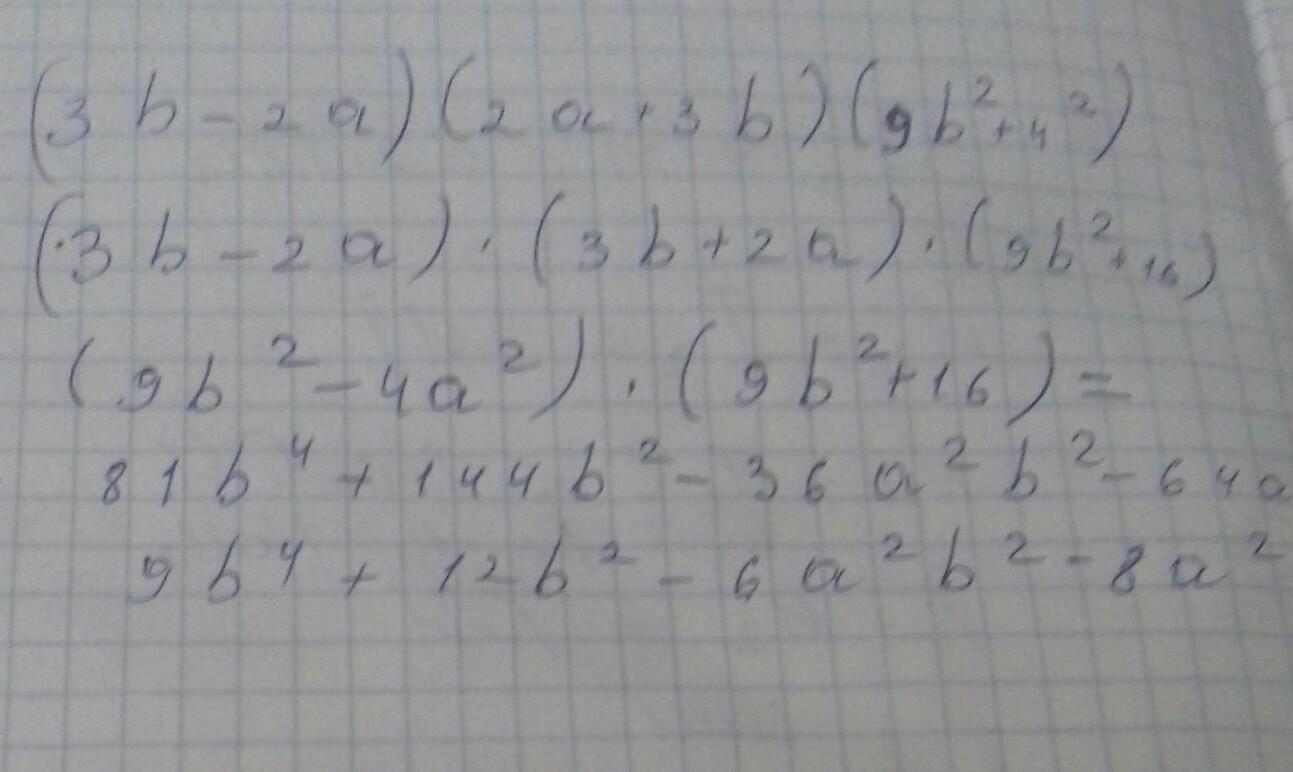 (3b-2a)(2a+3b)(9b²+4²)
(3b-2a)·(3b+2a)·(9b²+16)
(9b²-4a²)·(9b²+16)=
81b⁴+144b²-36a²b²-64a
9b⁴+12b²-6a²b²-8a²